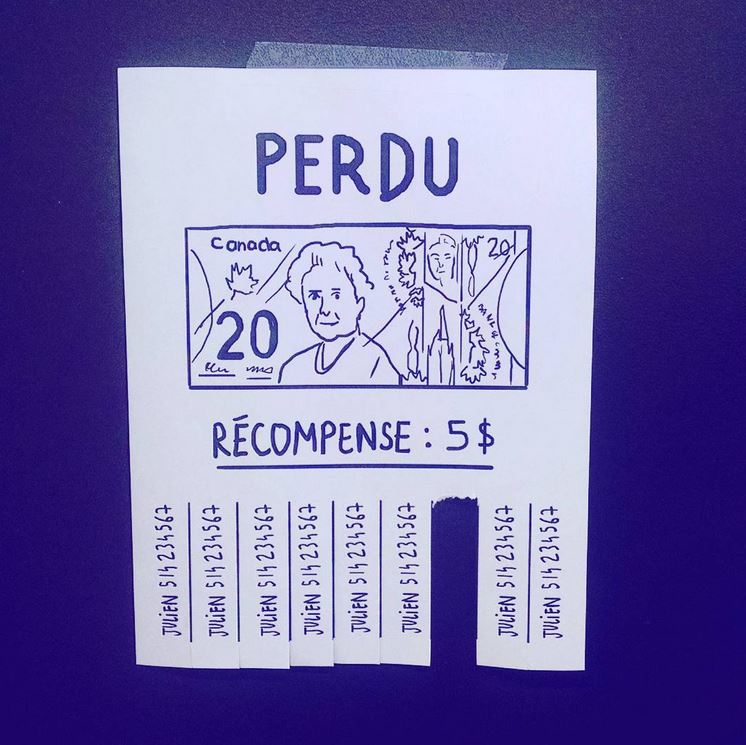 PERDU
Canada
20
20
RÉCOMPENSE : 5 $
JULiEN 514 234567
JULiEN 514 234567
JULiEN 514 234567
JULiEN 514 234567
JULiEN 514 234567
JULiEN 514 234567
JULiEN 514 234567
JULiEN 514 234567